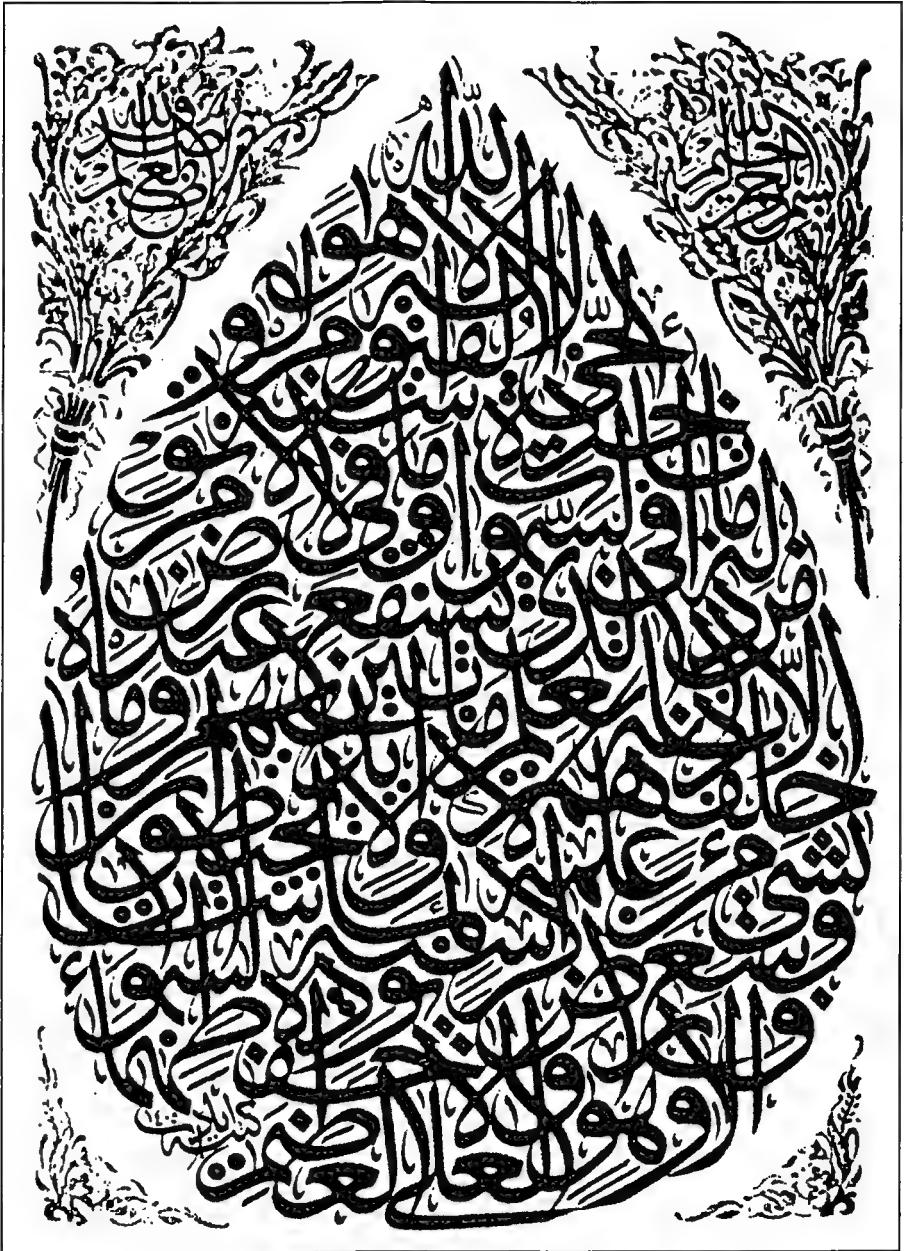 الله
لا إله إلا هو
الحي القيوم لا
تأخذه سنة ولا نوم
له ما في السموات وما في الأرض
من ذا الذي يشفع عنده
إلا بإذنه يعلم ما بين أيديهم وما
خلفهم ولا يحيطون
بشيء من علمه إلا بما شاء
وسع كرسيه السموات
والأرض ولا يؤده حفظهما
وهو العلي العظيم